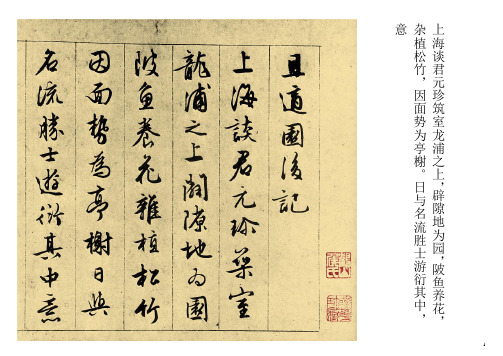 上海谈君元珍筑室龙浦之上，辟隙地为园，陂鱼养花，
杂植松竹，因面势为亭榭。日与名流胜士游衍其中，
意
且適園後記
上海談君元珍築室
龍浦之上闢隙地為園
陂魚養花雜植松竹
因面勢為亭榭日與
名流勝士遊衍其中意